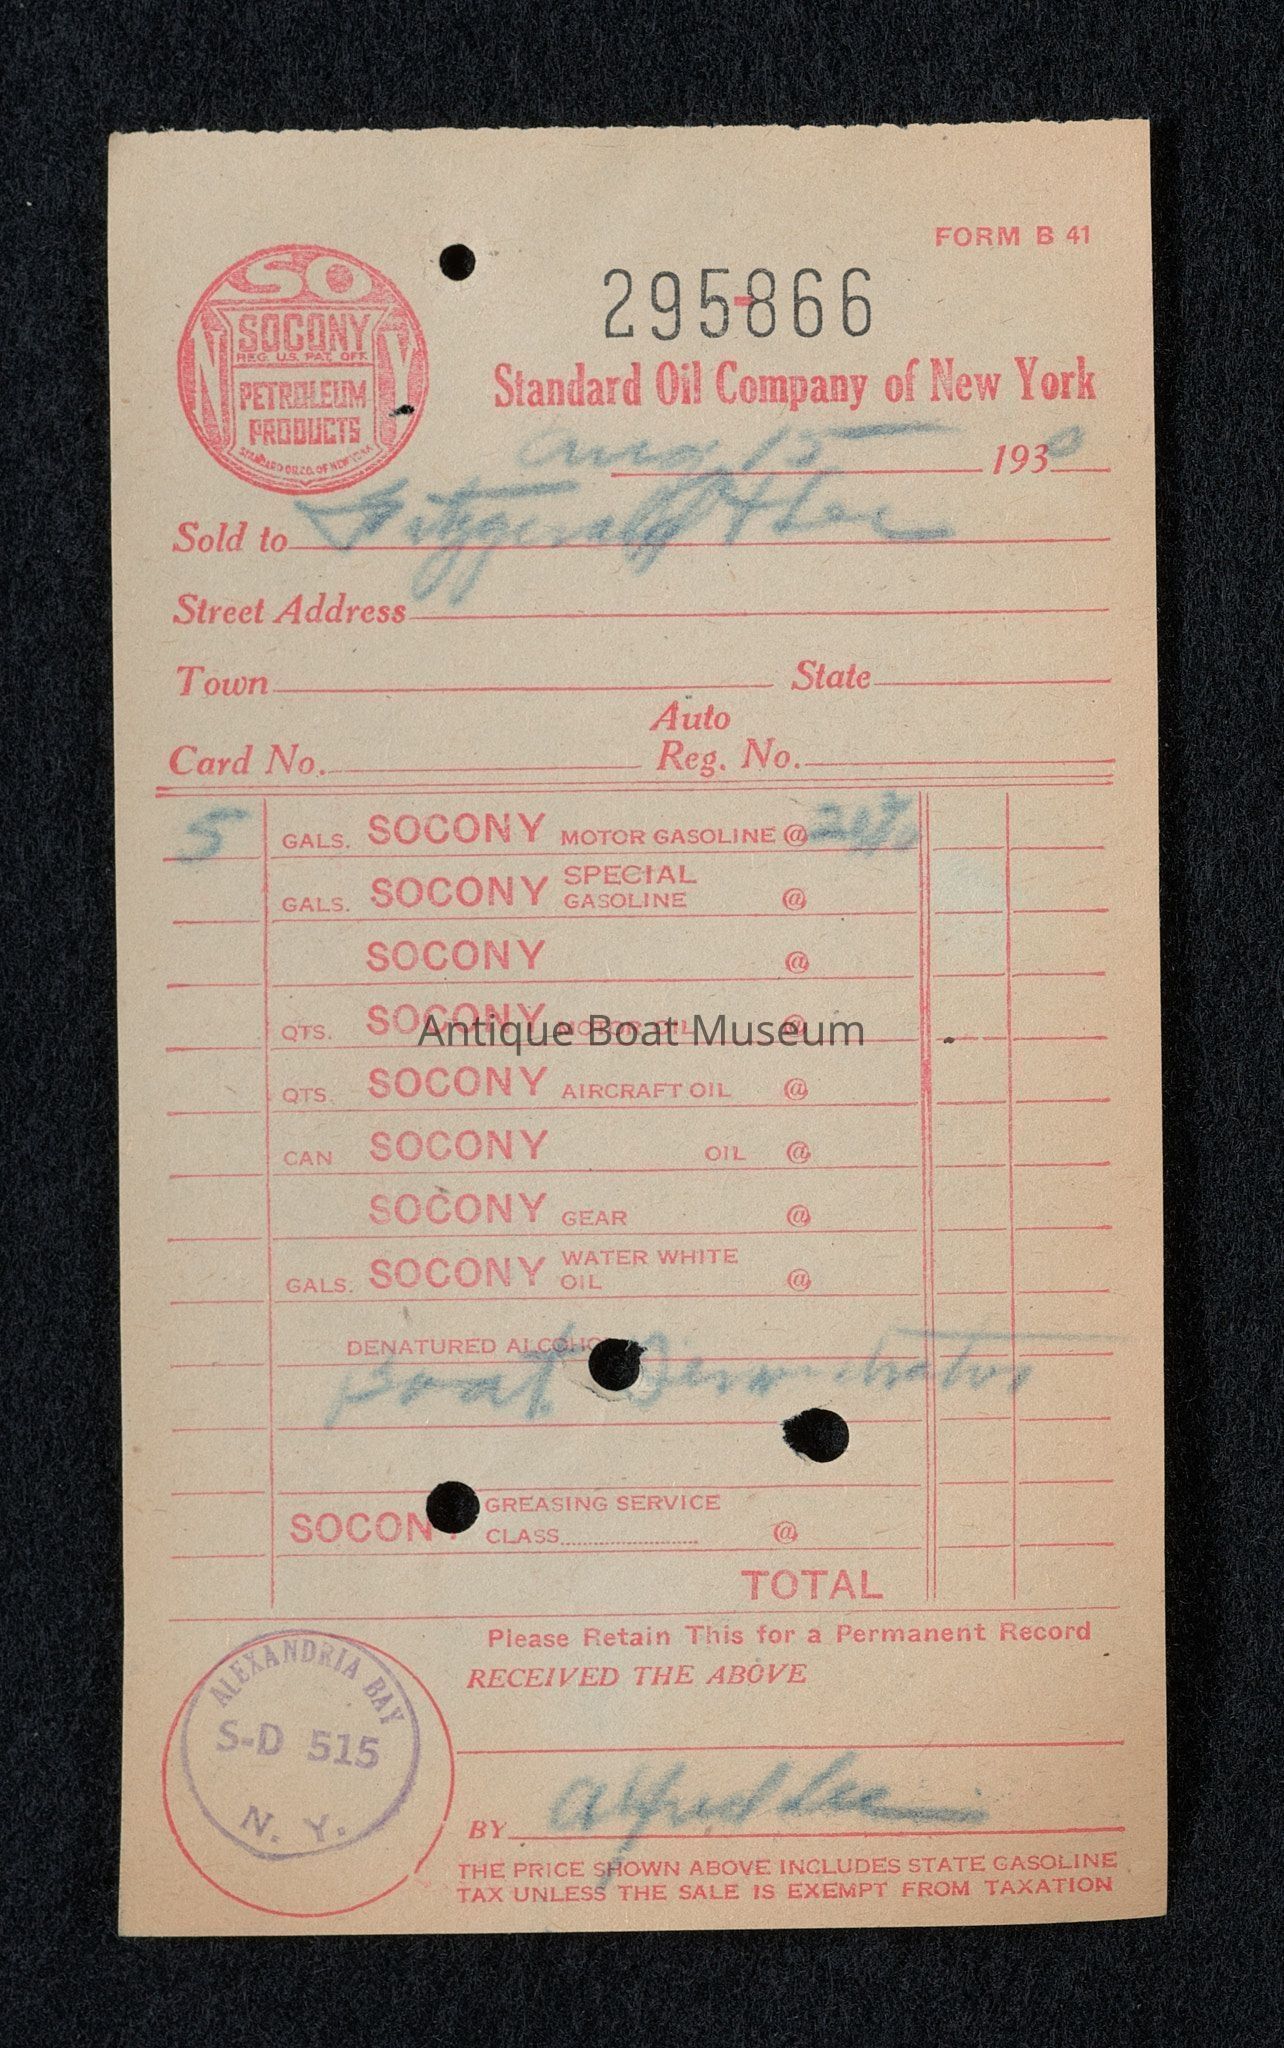 FORM B 41
295866
SO
SOCONY
REG. U.S. PAT. OFF.
N Y
PETROLEUM
PRODUCTS
STANDARD OIL CO. OF NEW YORK
Standard Oil Company of New York
Aug 15 1930
Sold to Fitzgerald & Lee
Street Address
Town State
Auto
Card No. Reg. No.
5 GALS. SOCONY MOTOR GASOLINE @
GALS. SOCONY SPECIAL GASOLINE @
SOCONY @
QTS. SOCONY MOTOR OIL @
Antique Boat Museum
QTS. SOCONY AIRCRAFT OIL @
CAN SOCONY OIL @
SOCONY GEAR @
GALS. SOCONY WATER WHITE OIL @
DENATURED ALCOHOL
Boat Demonstrator
SOCONY GREASING SERVICE
CLASS @
TOTAL
Please Retain This for a Permanent Record
RECEIVED THE ABOVE
ALEXANDRIA BAY
S-D 515
N. Y.
BY Alfred Lee
THE PRICE SHOWN ABOVE INCLUDES STATE GASOLINE
TAX UNLESS THE SALE IS EXEMPT FROM TAXATION